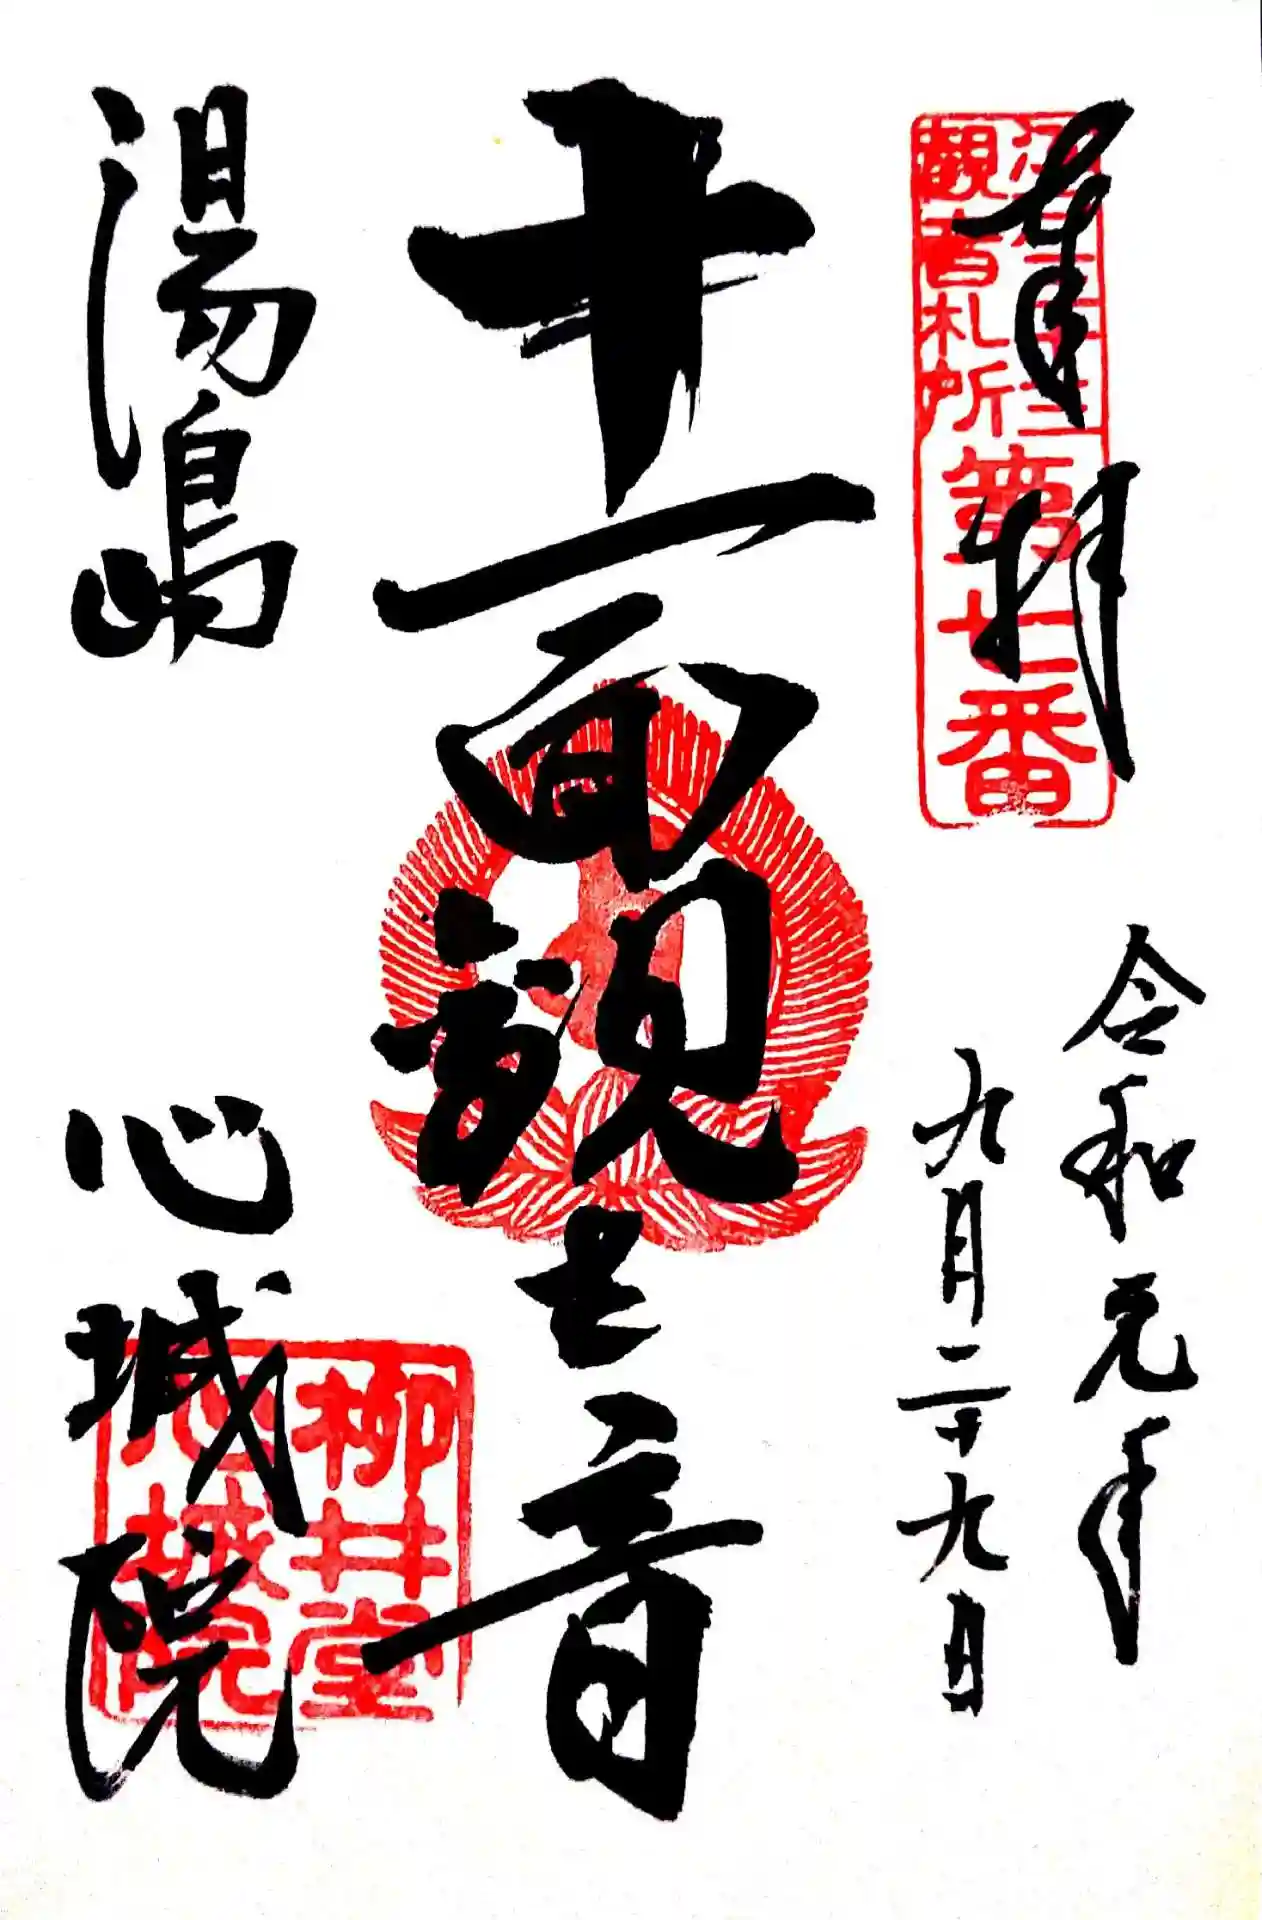 奉拝
江戸三十三
觀音札所
第七番
令和元年
九月二十九日
十一面観世音
湯島 心城院
柳井堂
心城院